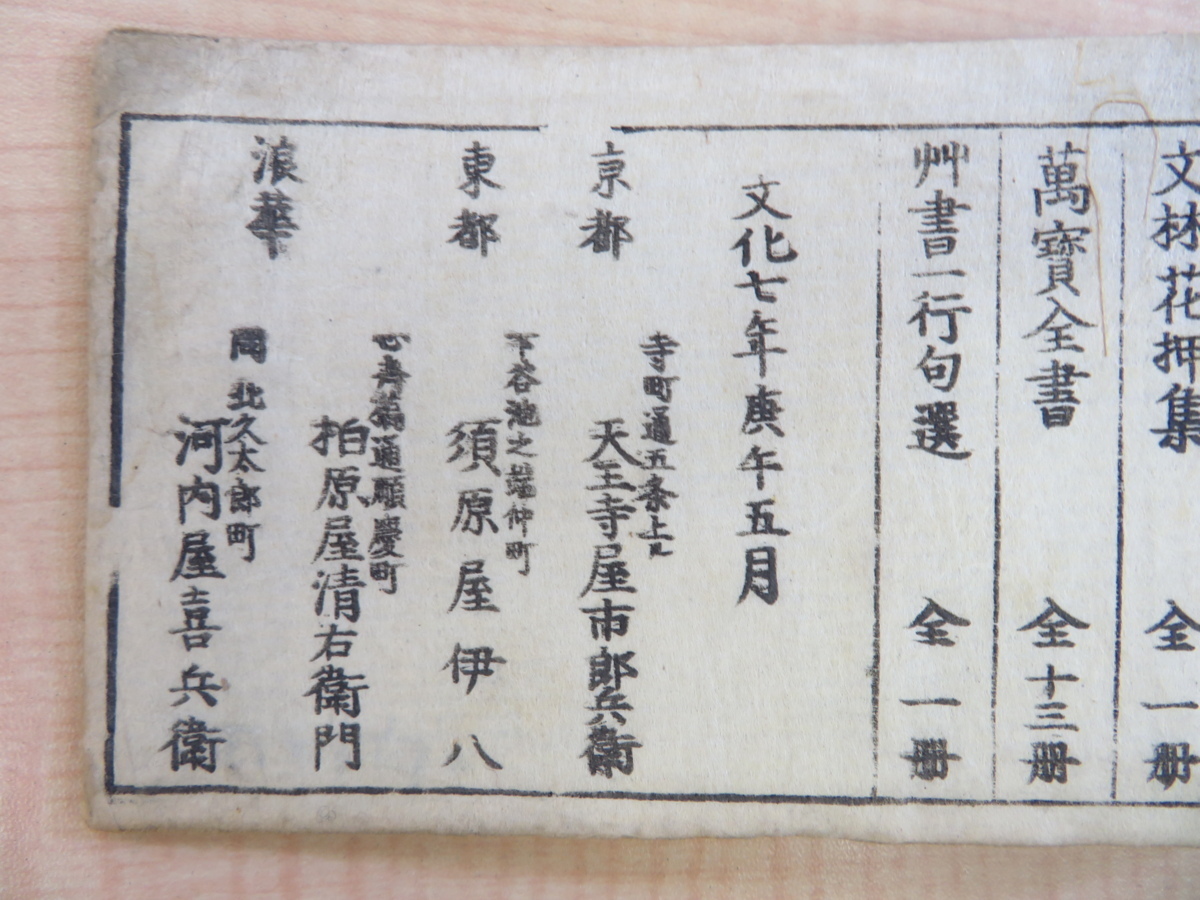 文林花押集 全一册
萬寳全書 全十三册
艸書一行句選 全一册
文化七年庚午五月
京都 寺町通五条上ル
天王寺屋市郎兵衛
東都 下谷池之端仲町
須原屋伊八
浪華 心斎橋通順慶町
柏原屋清右衛門
同 北久太郎町
河内屋喜兵衛